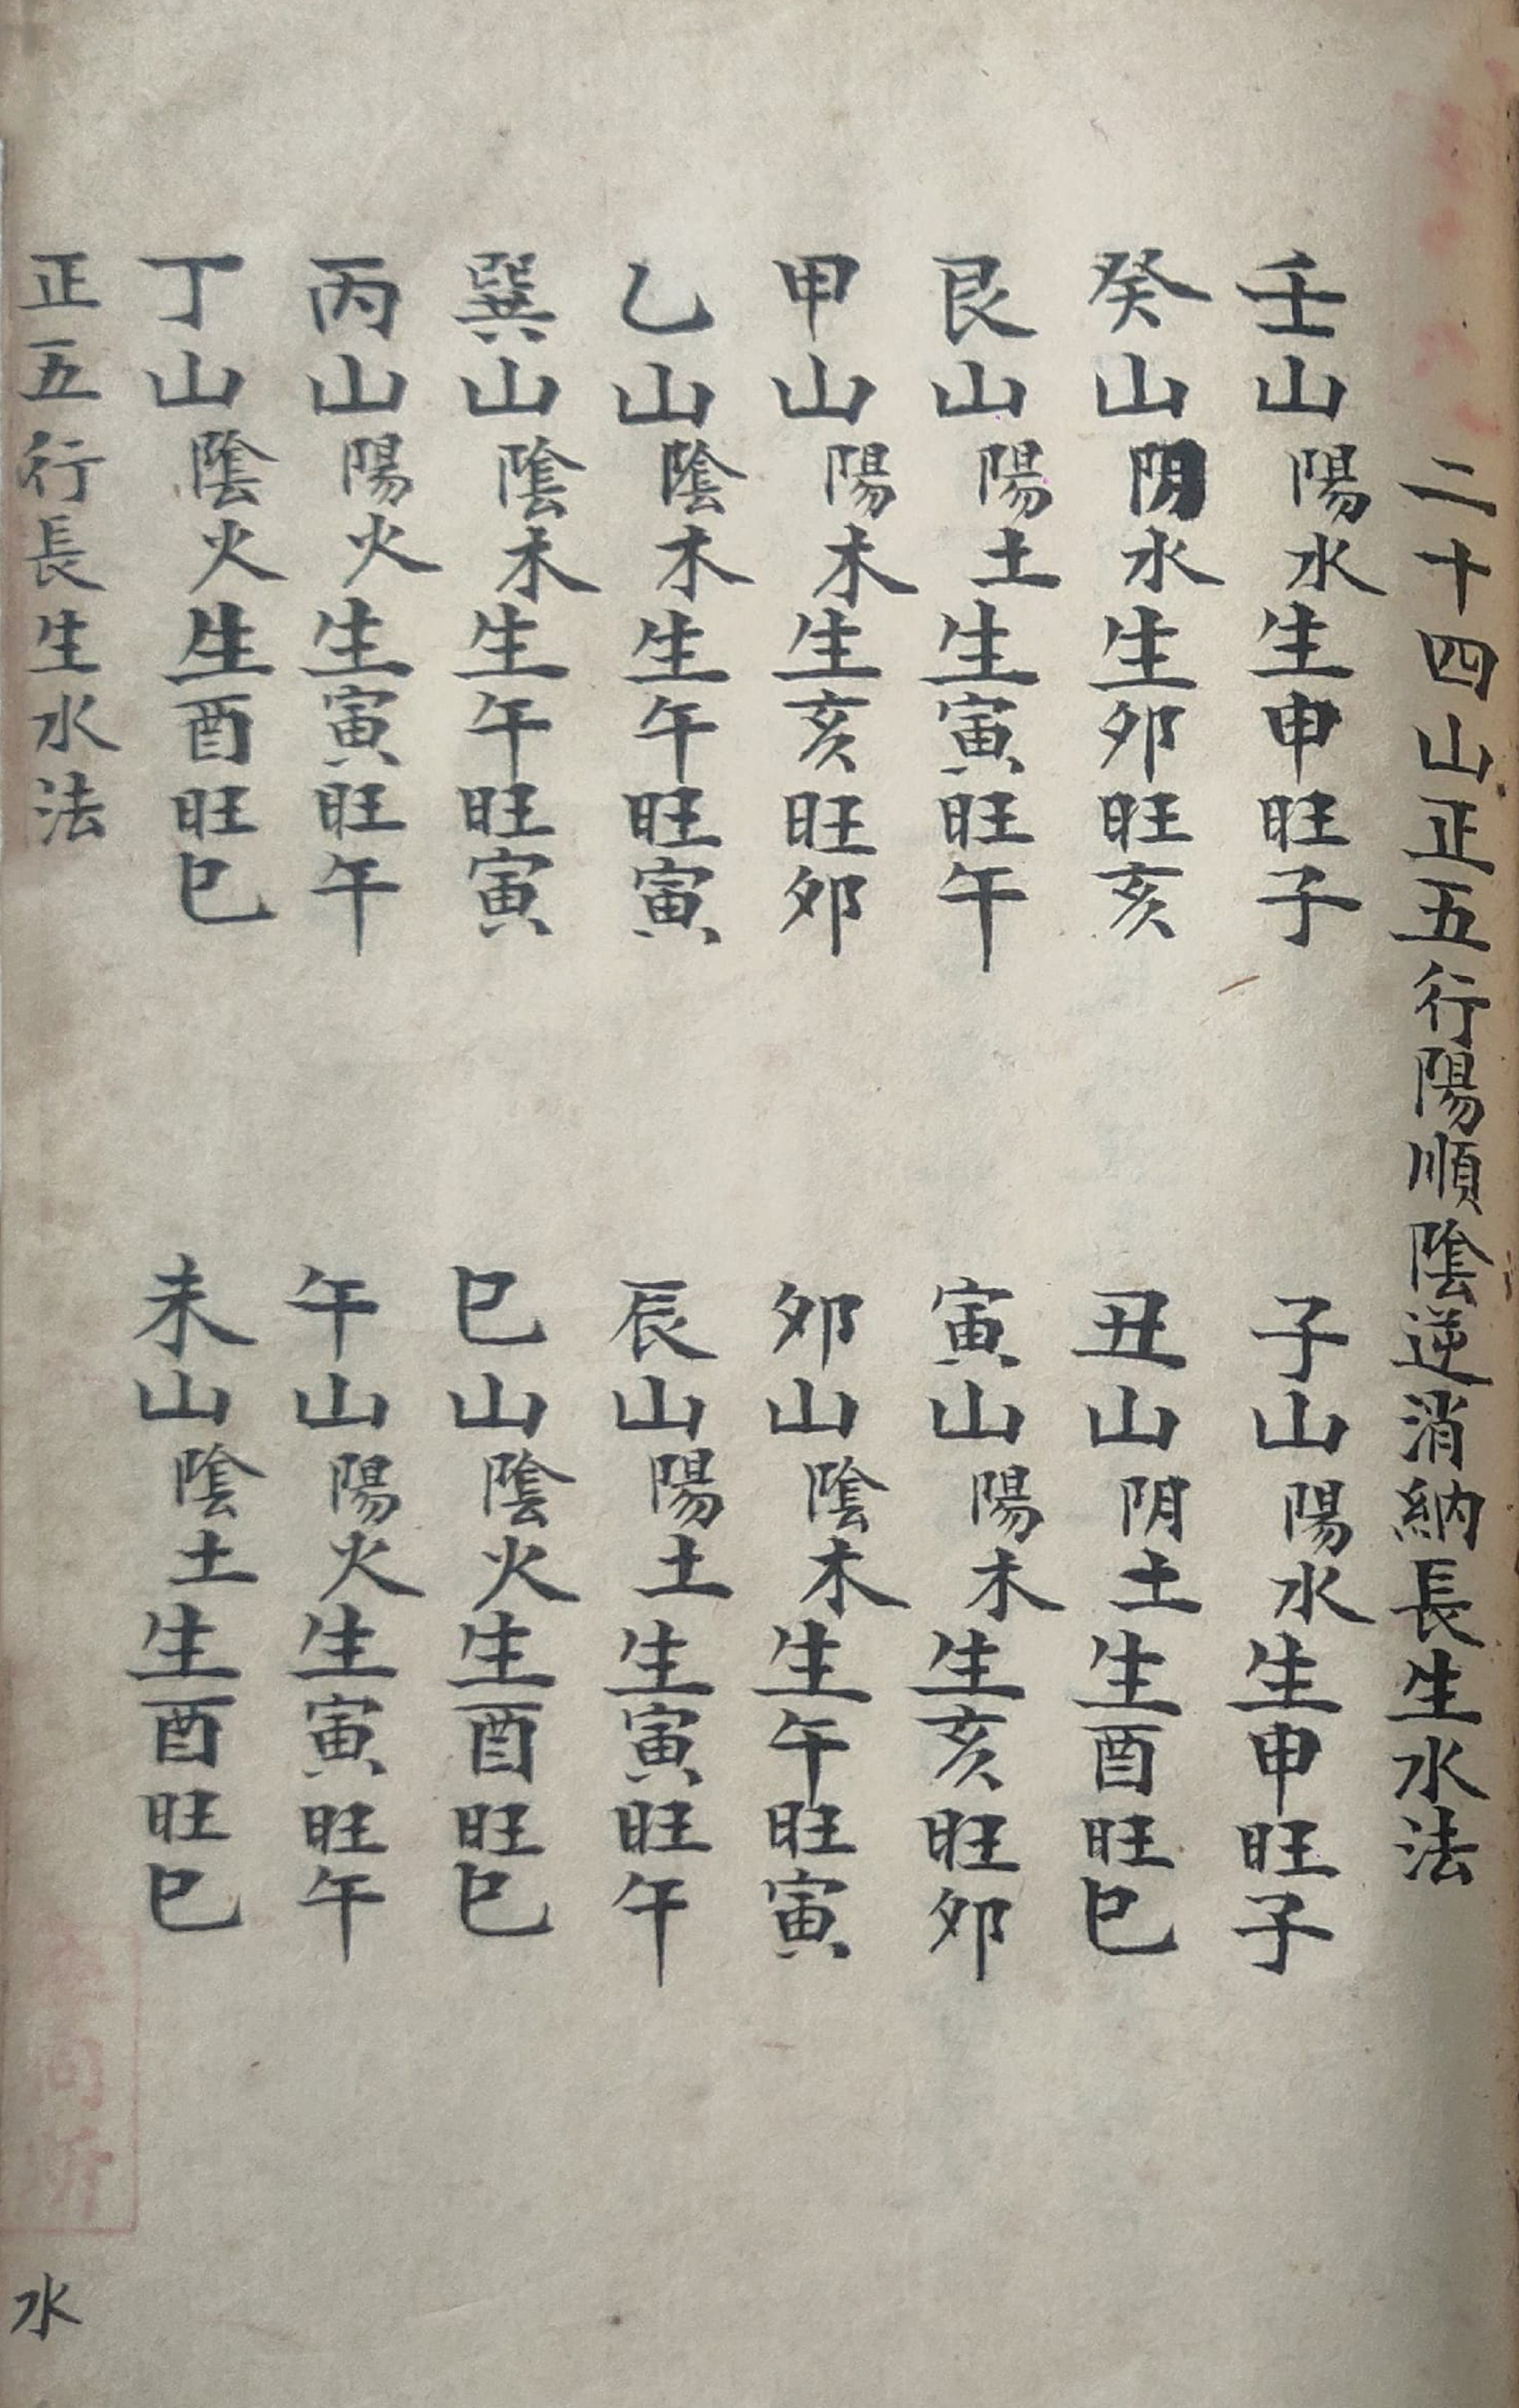 二十四山正五行陽順陰逆消納長生水法
壬山陽水生申旺子
子山陽水生申旺子
癸山阴水生卯旺亥
丑山阴土生酉旺巳
艮山陽土生寅旺午
寅山陽木生亥旺卯
甲山陽木生亥旺卯
卯山陰木生午旺寅
乙山陰木生午旺寅
辰山陽土生寅旺午
巽山陰木生午旺寅
巳山陰火生酉旺巳
丙山陽火生寅旺午
午山陽火生寅旺午
丁山陰火生酉旺巳
未山陰土生酉旺巳
正五行長生水法
水